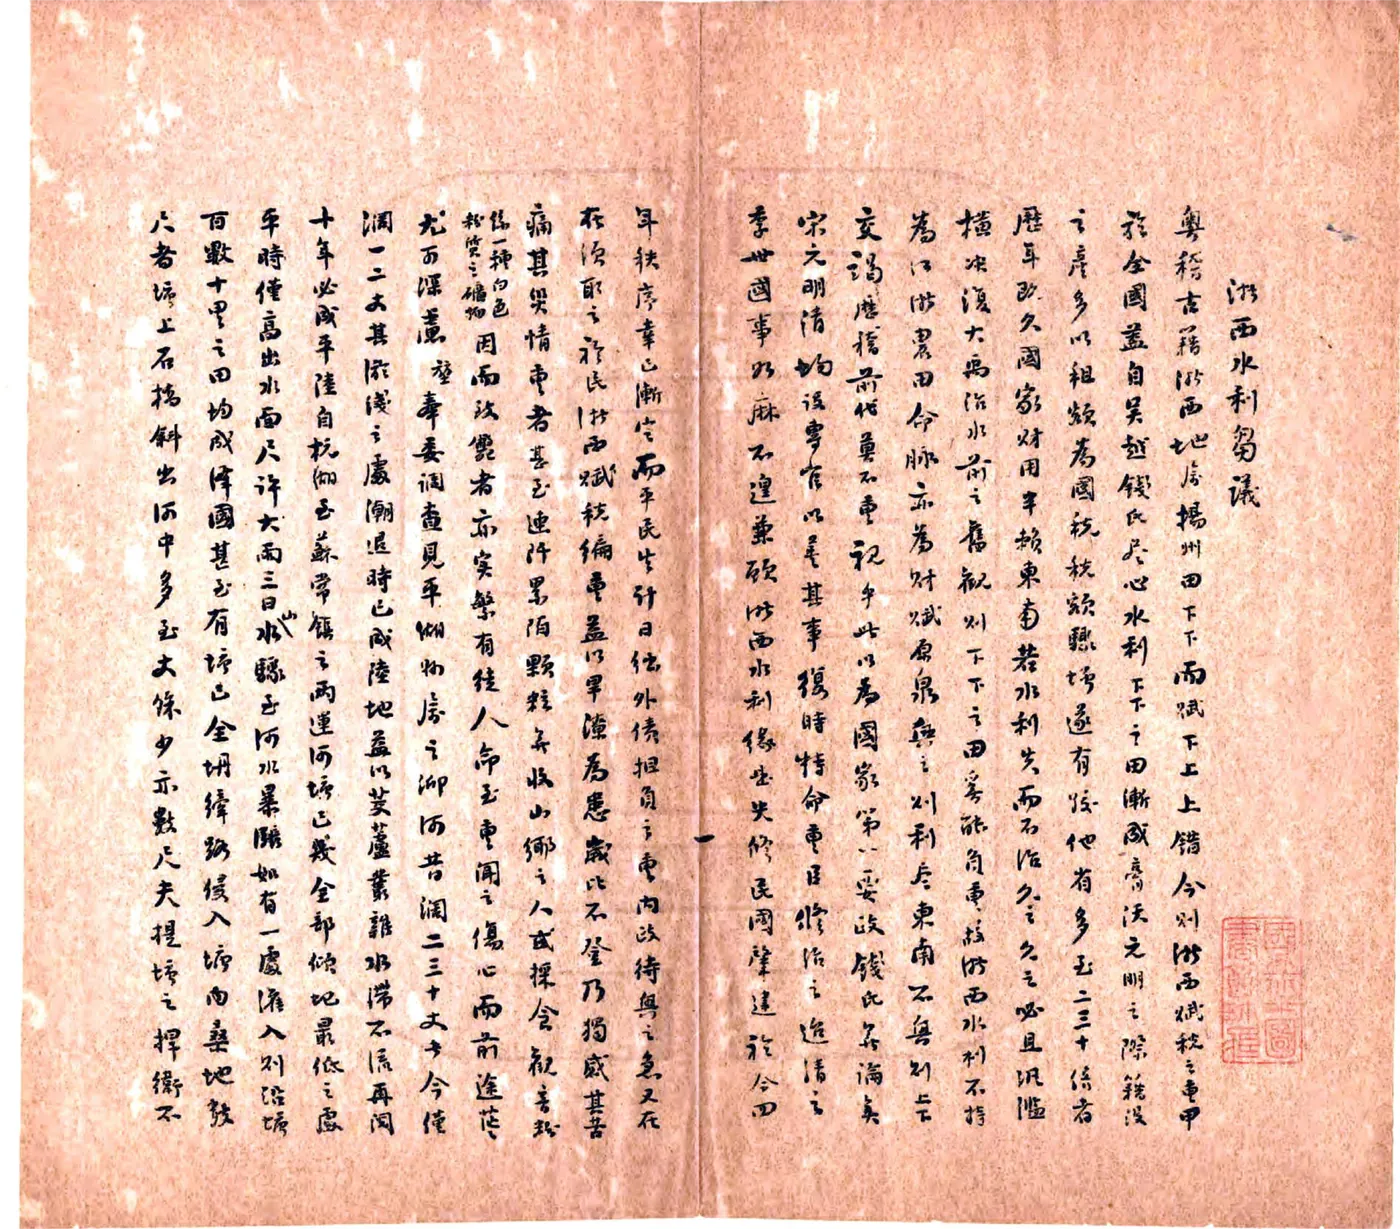 浙西水利芻議
粵稽古籍浙西地屬揚州田下下而賦下上上錯今則浙西賦稅之重甲
於全國蓋自吳越錢氏盡心水利下下之田漸成膏沃元明之際籍沒
之產多以租額為國稅稅額驟增遂有較他省多至二三十倍者
歷年既久國家財用半賴東南若水利失而不治久之久之必且汎濫
橫決復大禹治水前之舊觀則下下之田奚能負重故浙西水利不特
為江浙農田命脉亦為財賦原泉興之則利在東南不興則上下
交竭歷稽前代莫不重視乎此以為國家第一要政錢氏無論矣
宋元明清均設專官以董其事復時特命重臣修治之迨清之
季世國事如麻不遑兼顧浙西水利緣是失修民國肇建於今四
年秩序幸已漸定而平民生計日絀外債担負之重內政待興之急又在
在須取之於民浙西賦稅偏重益以旱潦為患歲比不登乃獨感其苦
痛其災情重者甚至連阡累陌顆粒無收山鄉之人或採食觀音粉
係一種白色粉質之礦物因而致斃者亦實繁有徒人命至重聞之傷心而前途茫茫
尤可深慮 奉委調查見平湖所屬之泖河昔濶二三十丈者今僅
濶一二丈其淤淺之處潮退時已成陸地益以茭蘆叢雜水滯不流再閱
十年必成平陸自杭湖至蘇常鎮之兩運河塘已幾全部傾圮最低之處
平時僅高出水面尺許大雨三日水必驟至河水暴漲如有一處灌入則沿塘
百數十里之田均成澤國甚至有塘已全坍縴路侵入塘內桑地數
尺者塘上石橋斜出河中多至丈餘少亦數尺夫提塘之捍衛不
一